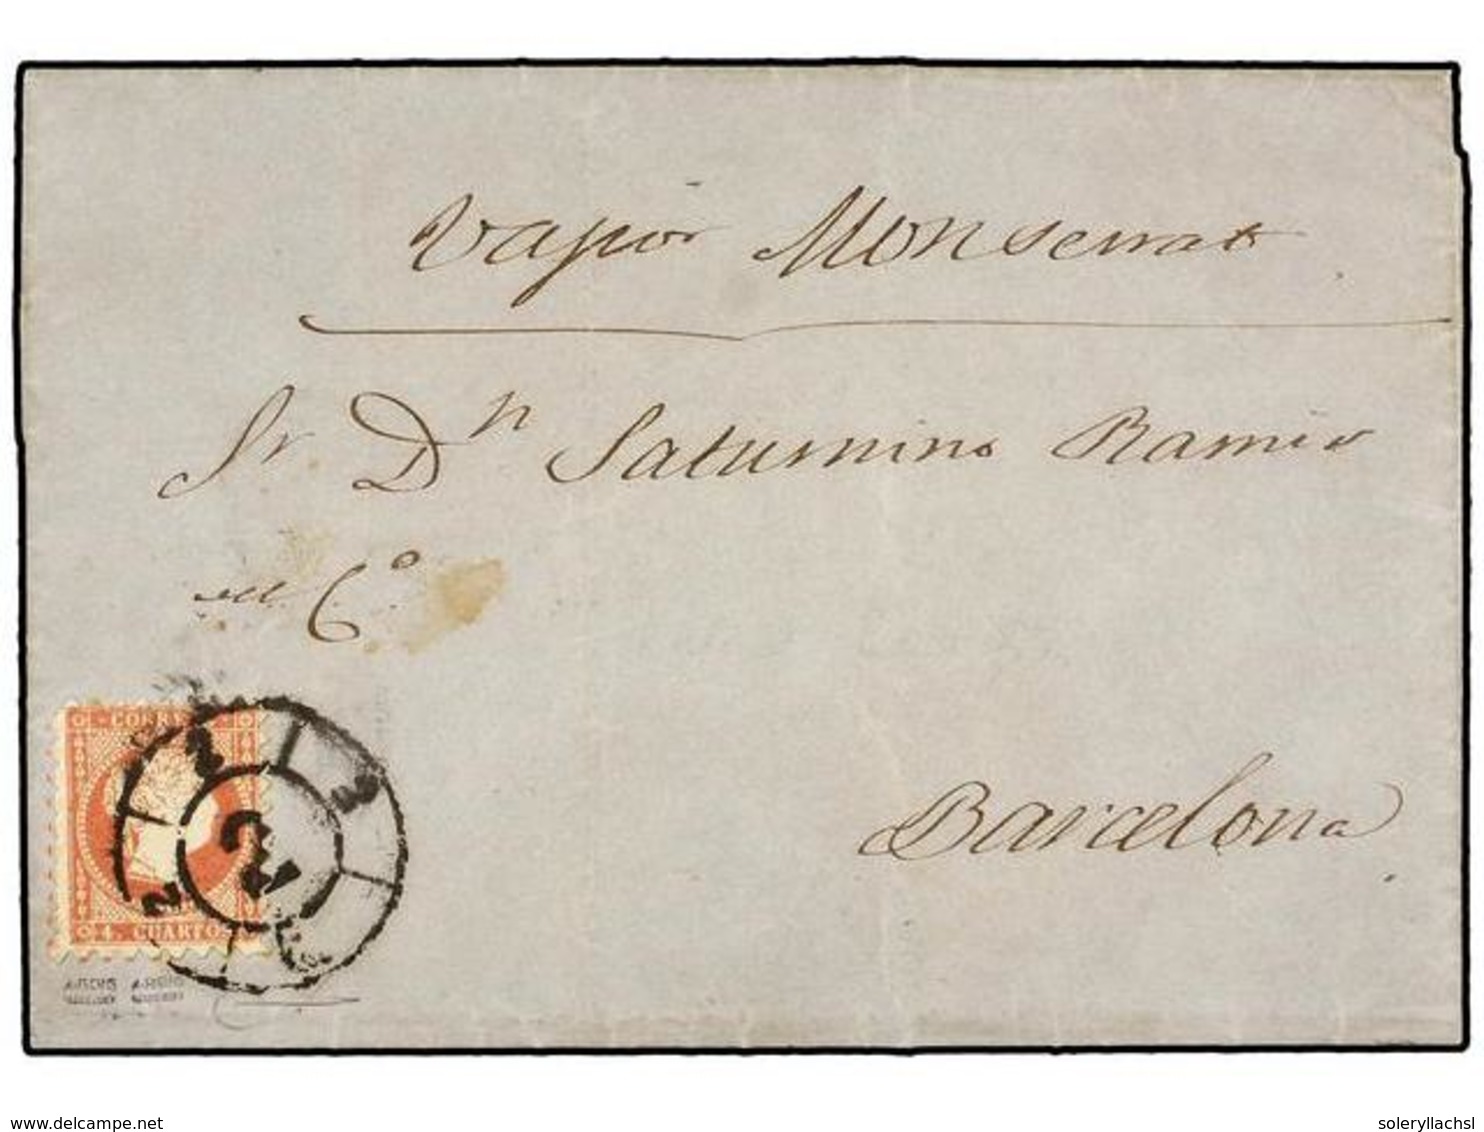 Vapor Monserrat
Sr. Dn Saturnino Ramis
Co.
Barcelona
CORREOS
4. CUARTOS
2
2
2
2
www.delcampe.net
soleryllachsl